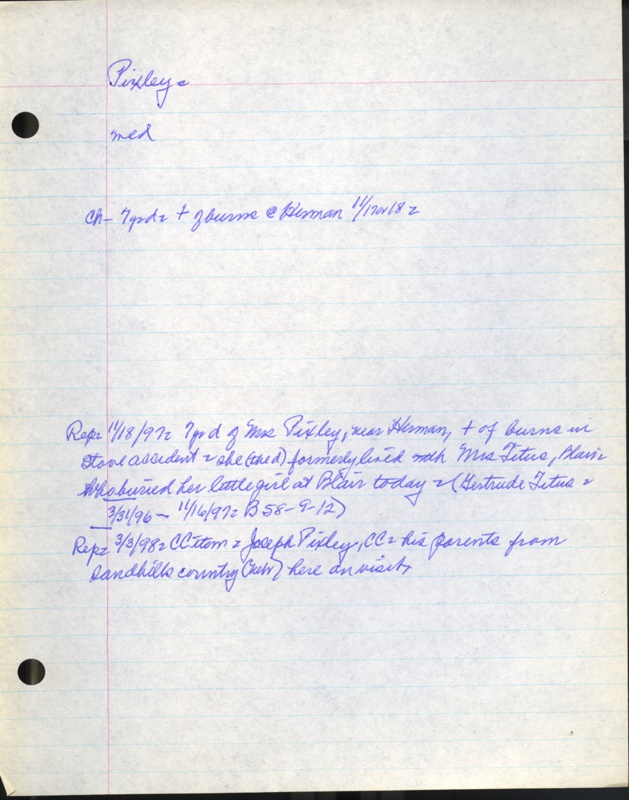 Pixley =
med
Ch- 7yrd = + of burns @ Herman 11/ 18 =
Rep= 11/18/97= 7yr d of Mrs Pixley, near Herman, + of burns in
stove accident = she (the d) formerly lived with Mrs Tetus, Blair=
Who buried her little girl at Blair today = (Gertrude Tetus =
3/31/96 - 11/16/97= B58-9-12)
Rep= 3/3/98= CC item = Joseph Pixley, CC = his parents from
Sandhills country (Nebr) here on visit,